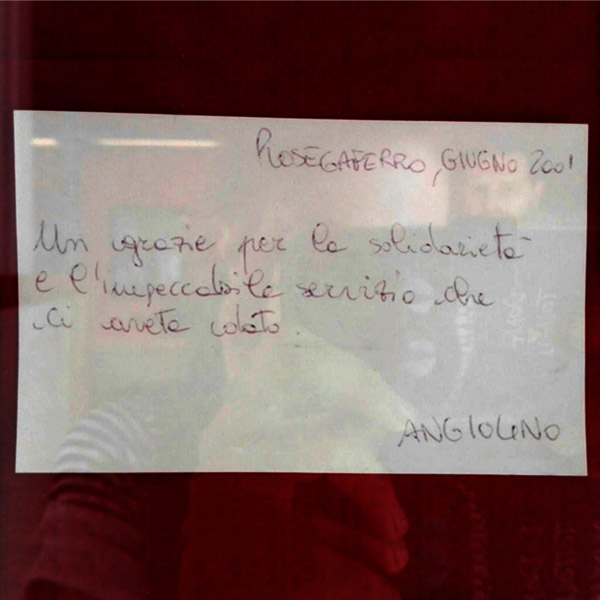 ROSEGAFERRO, GIUGNO 2001
Un grazie per la solidarietà
e l'impeccabile servizio che
ci avete dato.
ANGIOLINO